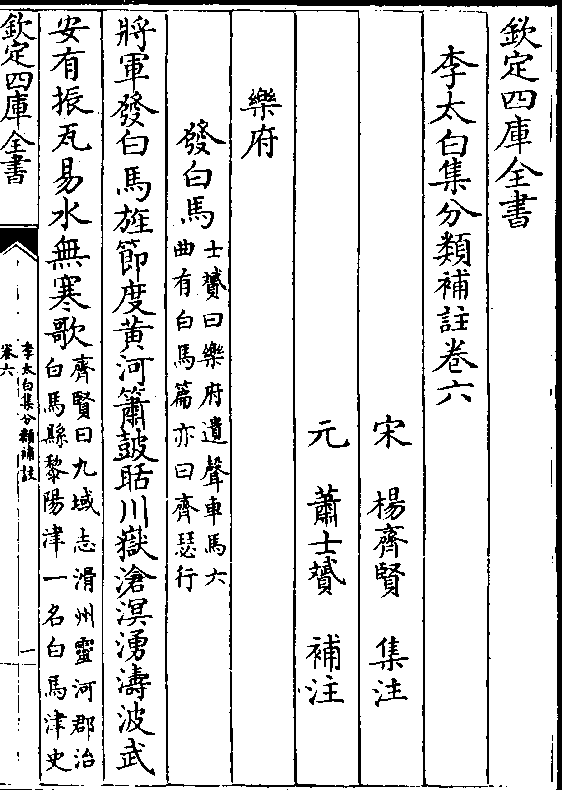 欽定四庫全書
李太白集分類補註卷六
宋 楊齊賢 集註
元 蕭士贇 補注
樂府
發白馬士贇曰樂府遺聲車馬六
曲有白馬篇亦曰齊瑟行
將軍發白馬旌節度黃河簫鼓聒川嶽滄溟湧濤波武
安有振瓦易水無寒歌齊賢曰九域志滑州靈河郡治
白馬縣黎陽津一名白馬津史
欽定四庫全書
李太白集分類補註
卷六
一